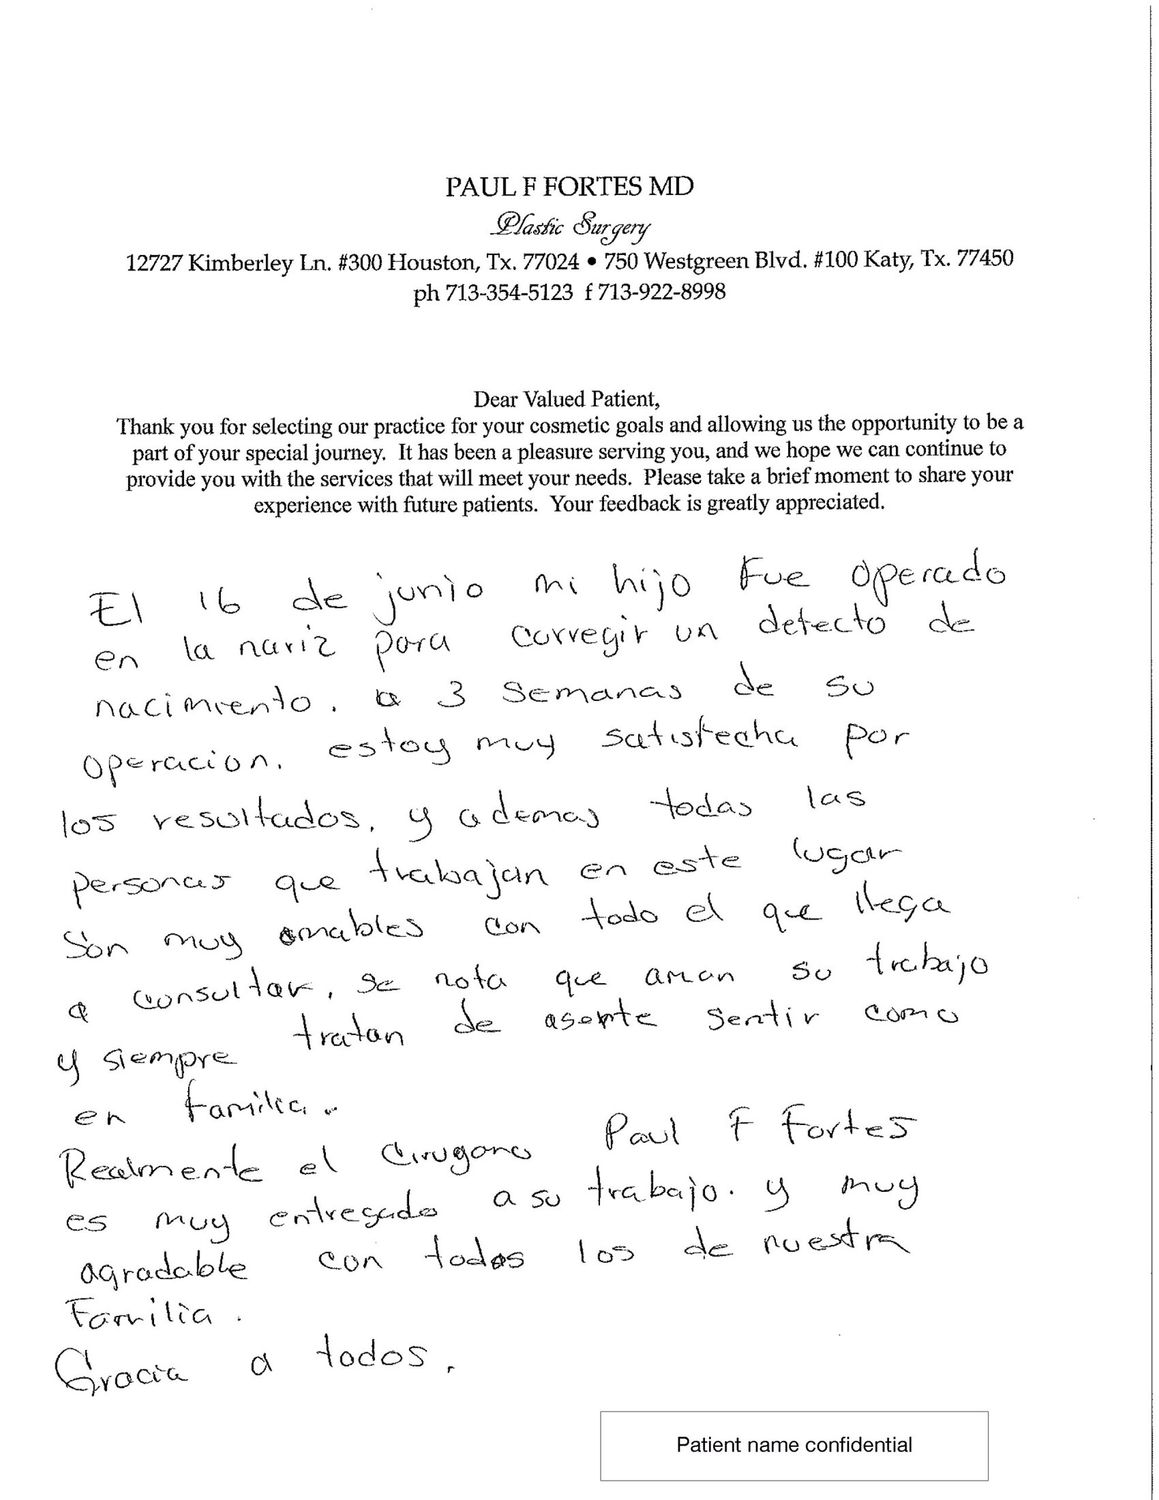 PAUL F FORTES MD
Plastic Surgery
12727 Kimberley Ln. #300 Houston, Tx. 77024 • 750 Westgreen Blvd. #100 Katy, Tx. 77450
ph 713-354-5123 f 713-922-8998
Dear Valued Patient,
Thank you for selecting our practice for your cosmetic goals and allowing us the opportunity to be a
part of your special journey. It has been a pleasure serving you, and we hope we can continue to
provide you with the services that will meet your needs. Please take a brief moment to share your
experience with future patients. Your feedback is greatly appreciated.
El 16 de junio mi hijo Fue operado
en la nariz para corregir un defecto de
nacimiento. a 3 semanas de su
operacion. estoy muy satisfecha por
los resultados, y ademas todas las
personas que trabajan en este lugar
son muy amables con todo el que llega
a consultar, se nota que aman su trabajo
y siempre tratan de aserte sentir como
en familia.
Realmente el Cirugano Paul F Fortes
es muy entregado a su trabajo. y muy
agradable con todos los de nuestra
Familia.
Gracia a todos.
Patient name confidential